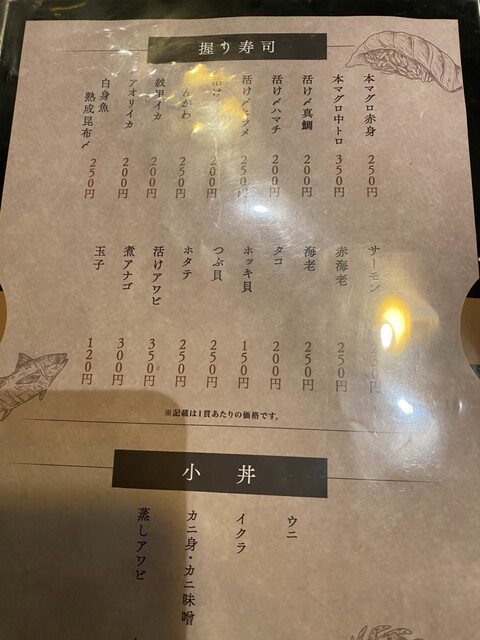 握り寿司
本マグロ赤身 250円
本マグロ中トロ 350円
活け〆真鯛 200円
活け〆ハマチ 200円
活け〆ヒラメ 250円
200円
えんがわ 250円
紋甲イカ 200円
アオリイカ 200円
白身魚熟成昆布〆 250円
サーモン
赤海老 250円
海老 250円
タコ 200円
ホッキ貝 150円
つぶ貝 250円
ホタテ 250円
活けアワビ 350円
煮アナゴ 300円
玉子 120円
※記載は1貫あたりの価格です。
小丼
ウニ
イクラ
カニ身・カニ味噌
蒸しアワビ